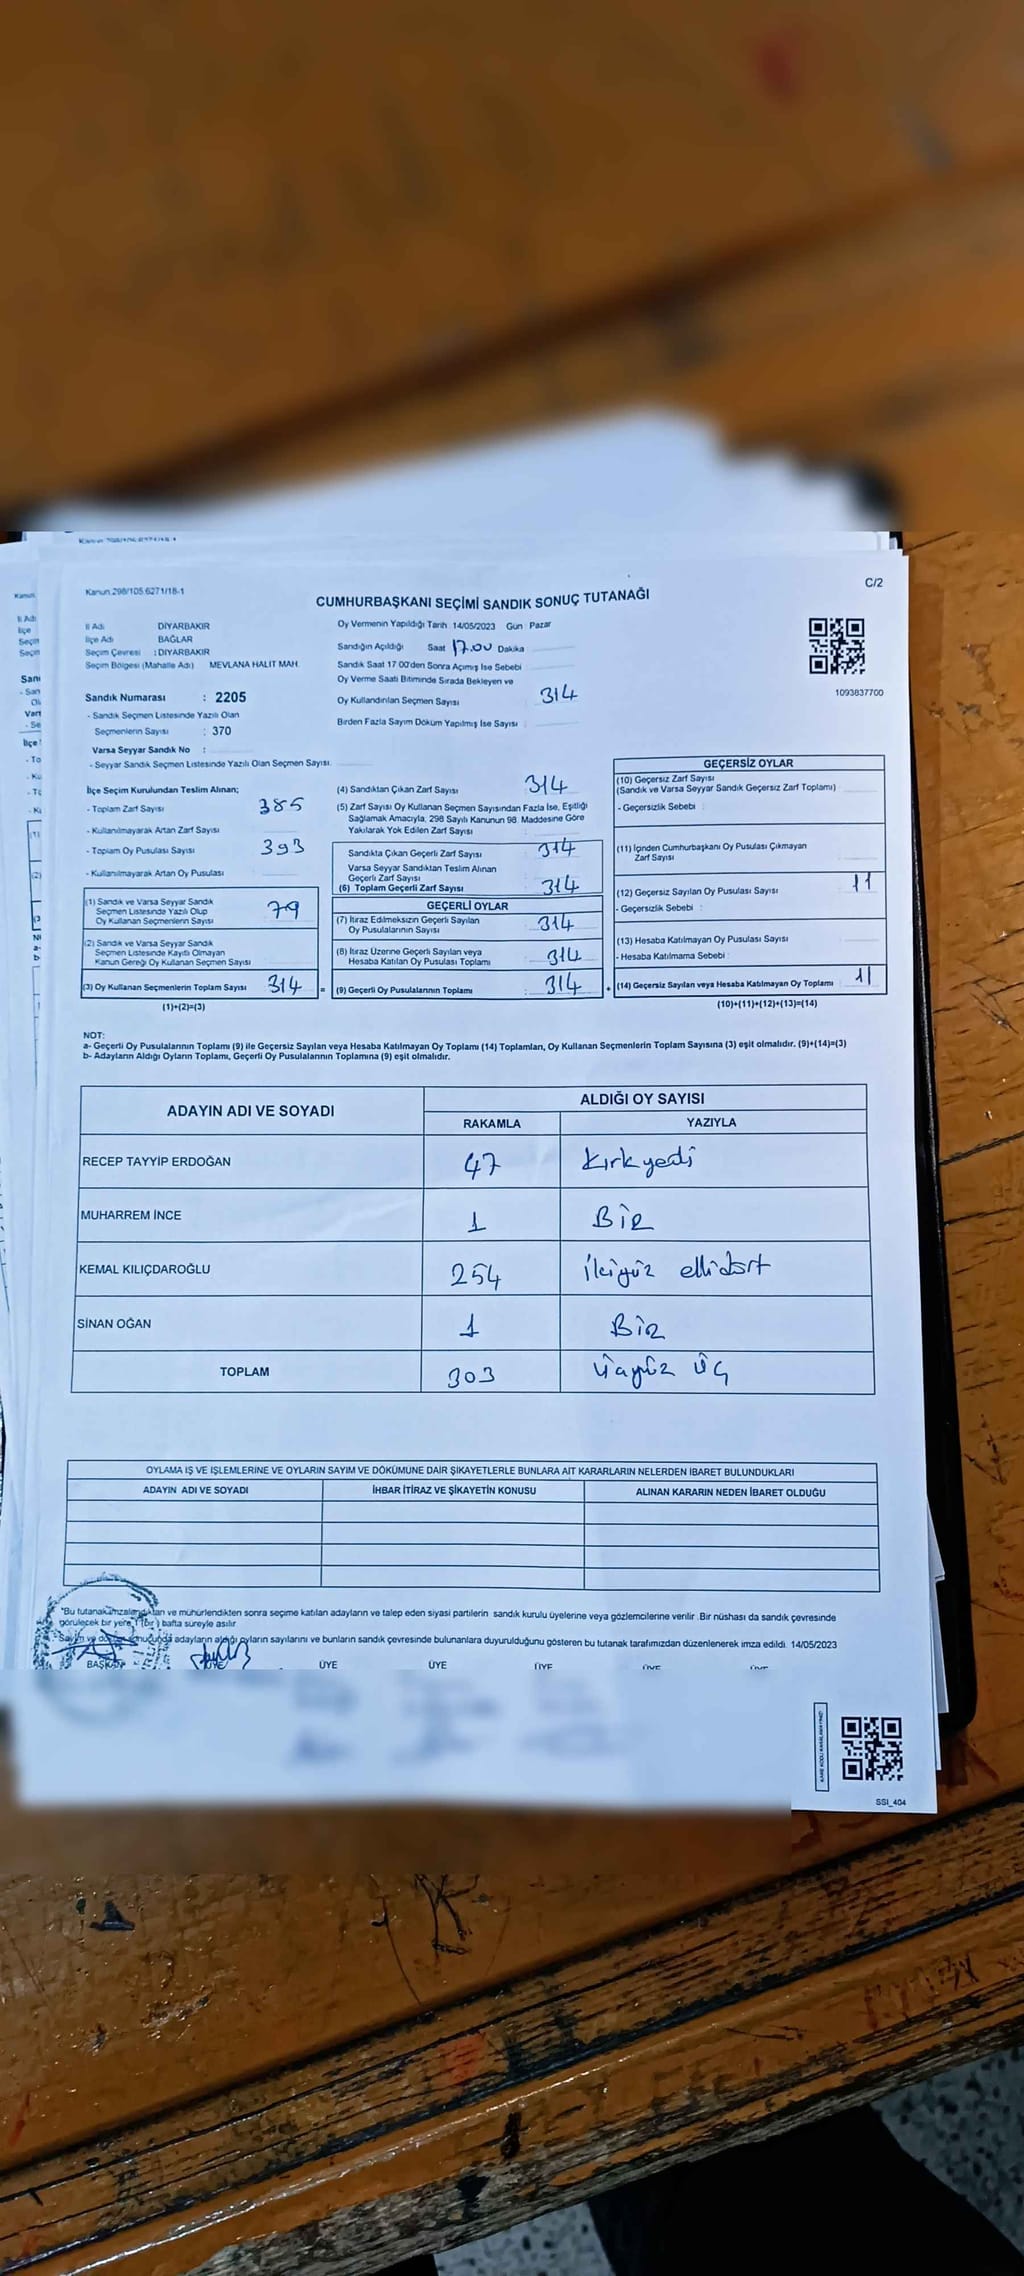 Kanun.298/105.6271/18-1
C/2
CUMHURBAŞKANI SEÇİMİ SANDIK SONUÇ TUTANAĞI
İl Adı DİYARBAKIR
İlçe Adı BAĞLAR
Seçim Çevresi : DİYARBAKIR
Seçim Bölgesi (Mahalle Adı) MEVLANA HALİT MAH.
Oy Vermenin Yapıldığı Tarih 14/05/2023 Gün Pazar
Sandığın Açıldığı Saat 17.00 Dakika
Sandık Saat 17 00'den Sonra Açımış İse Sebebi
Oy Verme Saati Bitiminde Sırada Bekleyen ve
Oy Kullandırılan Seçmen Sayısı 314
Birden Fazla Sayım Döküm Yapılmış İse Sayısı :
1093837700
Sandık Numarası : 2205
- Sandık Seçmen Listesinde Yazılı Olan
Seçmenlerin Sayısı : 370
Varsa Seyyar Sandık No :
- Seyyar Sandık Seçmen Listesinde Yazılı Olan Seçmen Sayısı:
İlçe Seçim Kurulundan Teslim Alınan;
- Toplam Zarf Sayısı 385
- Kullanılmayarak Artan Zarf Sayısı
- Toplam Oy Pusulası Sayısı 393
- Kullanılmayarak Artan Oy Pusulası
(1) Sandık ve Varsa Seyyar Sandık
Seçmen Listesinde Yazılı Olup
Oy Kullanan Seçmenlerin Sayısı 79
(2) Sandık ve Varsa Seyyar Sandık
Seçmen Listesinde Kayıtlı Olmayan
Kanun Gereği Oy Kullanan Seçmen Sayısı
(3) Oy Kullanan Seçmenlerin Toplam Sayısı 314 =
(1)+(2)=(3)
(4) Sandıktan Çıkan Zarf Sayısı 314
(5) Zarf Sayısı Oy Kullanan Seçmen Sayısından Fazla İse, Eşitliği
Sağlamak Amacıyla, 298 Sayılı Kanunun 98. Maddesine Göre
Yakılarak Yok Edilen Zarf Sayısı :
Sandıkta Çıkan Geçerli Zarf Sayısı 314
Varsa Seyyar Sandıktan Teslim Alınan
Geçerli Zarf Sayısı
(6) Toplam Geçerli Zarf Sayısı 314
GEÇERLİ OYLAR
(7) İtiraz Edilmeksizin Geçerli Sayılan
Oy Pusulalarının Sayısı 314
(8) İtiraz Üzerine Geçerli Sayılan veya
Hesaba Katılan Oy Pusulası Toplamı 314
(9) Geçerli Oy Pusulalarının Toplamı : 314 +
GEÇERSİZ OYLAR
(10) Geçersiz Zarf Sayısı
(Sandık ve Varsa Seyyar Sandık Geçersiz Zarf Toplamı)
- Geçersizlik Sebebi :
(11) İçinden Cumhurbaşkanı Oy Pusulası Çıkmayan
Zarf Sayısı
(12) Geçersiz Sayılan Oy Pusulası Sayısı 11
- Geçersizlik Sebebi :
(13) Hesaba Katılmayan Oy Pusulası Sayısı
- Hesaba Katılmama Sebebi :
(14) Geçersiz Sayılan veya Hesaba Katılmayan Oy Toplamı 11
(10)+(11)+(12)+(13)=(14)
NOT:
a- Geçerli Oy Pusulalarının Toplamı (9) ile Geçersiz Sayılan veya Hesaba Katılmayan Oy Toplamı (14) Toplamları, Oy Kullanan Seçmenlerin Toplam Sayısına (3) eşit olmalıdır. (9)+(14)=(3)
b- Adayların Aldığı Oyların Toplamı, Geçerli Oy Pusulalarının Toplamına (9) eşit olmalıdır.
ADAYIN ADI VE SOYADI ALDIĞI OY SAYISI
RAKAMLA YAZIYLA
RECEP TAYYİP ERDOĞAN 47 Kırkyedi
MUHARREM İNCE 1 Bir
KEMAL KILIÇDAROĞLU 254 İkiyüz ellidört
SİNAN OĞAN 1 Bir
TOPLAM 303 Üçyüz üç
OYLAMA İŞ VE İŞLEMLERİNE VE OYLARIN SAYIM VE DÖKÜMÜNE DAİR ŞİKAYETLERLE BUNLARA AİT KARARLARIN NELERDEN İBARET BULUNDUKLARI
ADAYIN ADI VE SOYADI İHBAR İTİRAZ VE ŞİKAYETİN KONUSU ALINAN KARARIN NEDEN İBARET OLDUĞU
"Bu tutanak imzalandıktan ve mühürlendikten sonra seçime katılan adayların ve talep eden siyasi partilerin sandık kurulu üyelerine veya gözlemcilerine verilir. Bir nüshası da sandık çevresinde
görülecek bir yere 1 (bir) hafta süreyle asılır
Sayım ve döküm sonucunda adayların aldığı oyların sayılarını ve bunların sandık çevresinde bulunanlara duyurulduğunu gösteren bu tutanak tarafımızdan düzenlenerek imza edildi. 14/05/2023
BAŞKAN ÜYE ÜYE ÜYE ÜYE ÜYE ÜYE
SSI_404